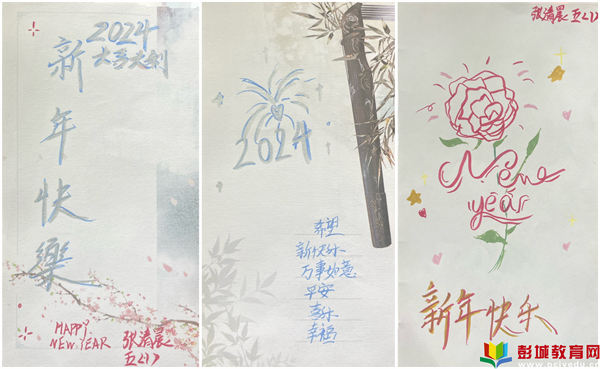 2024
大吉大利
新年快樂
HAPPY
NEW YEAR
张清晨
五(1)
2024
希望
新快乐
万事如意
平安
喜乐
幸福
张清晨 五(1)
New
year
新年快乐
彭城教育网